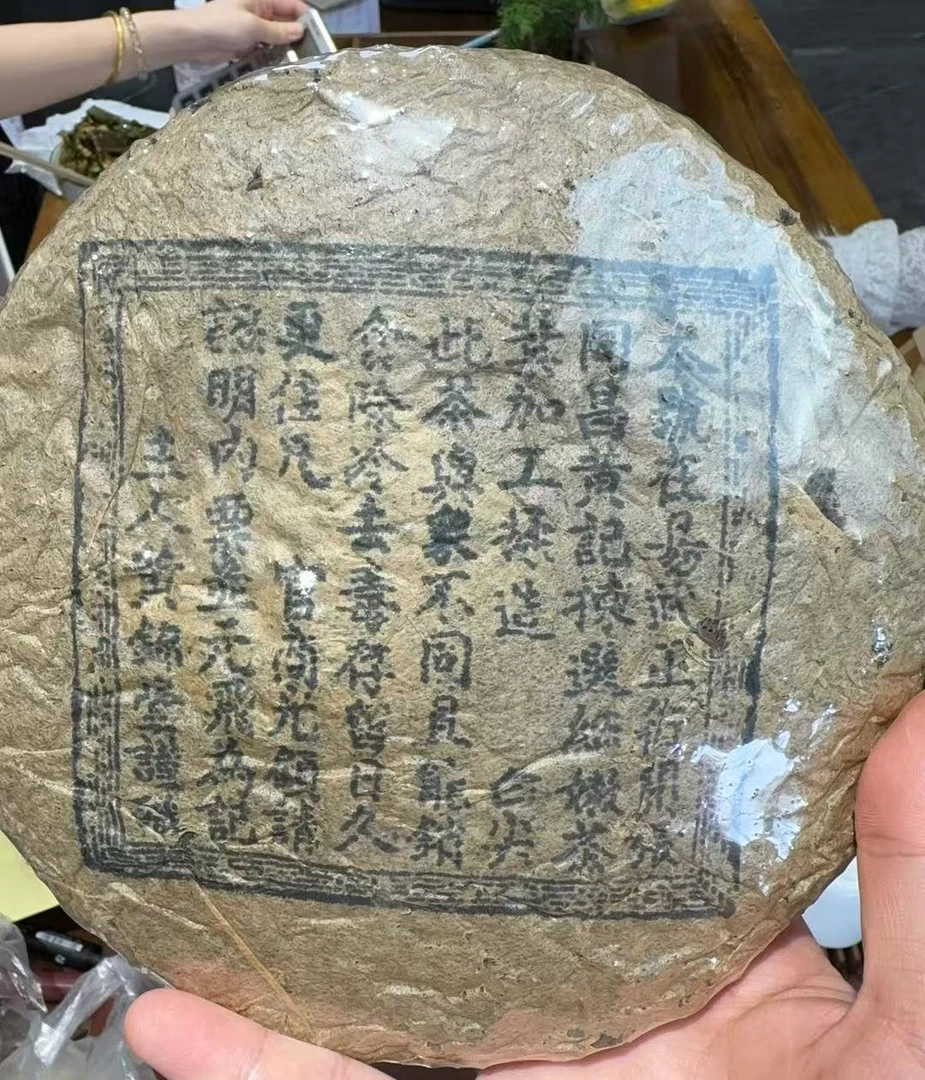 本號在易武正街開張
同昌黃記揀選細嫩茶
葉加工揉造 白尖
此茶與眾不同且能銷
食除冷去毒存留日久
更佳凡 官商光顧請
認明內票並元飛為記
主人黃錦堂謹識